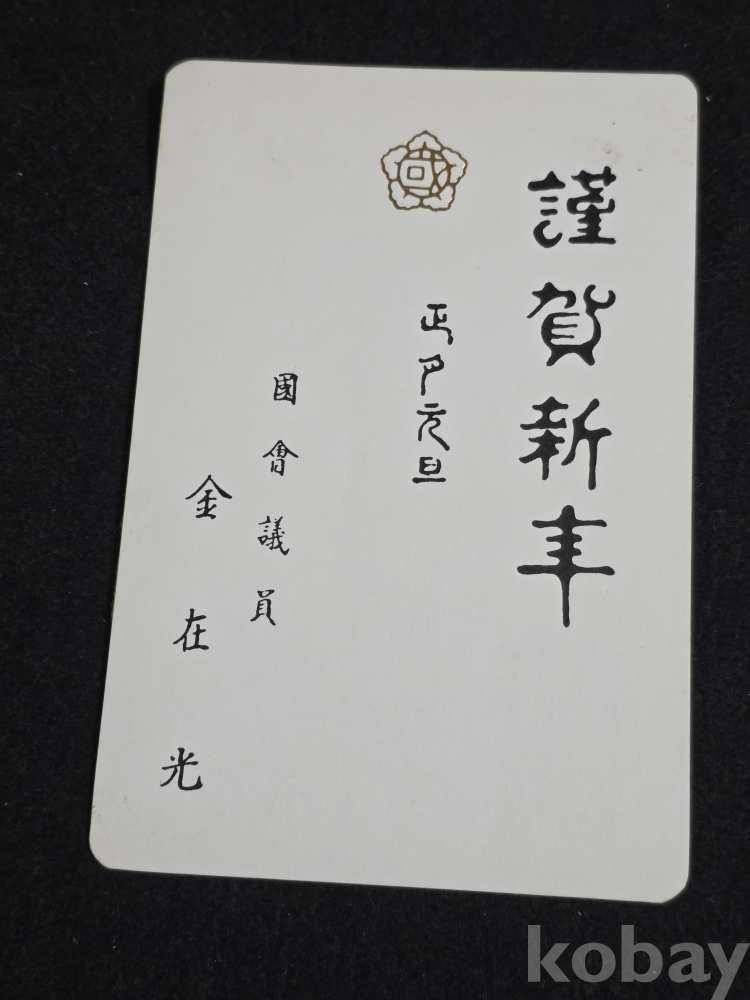 國
謹賀新年
正月元旦
國會議員
金在光
kobay